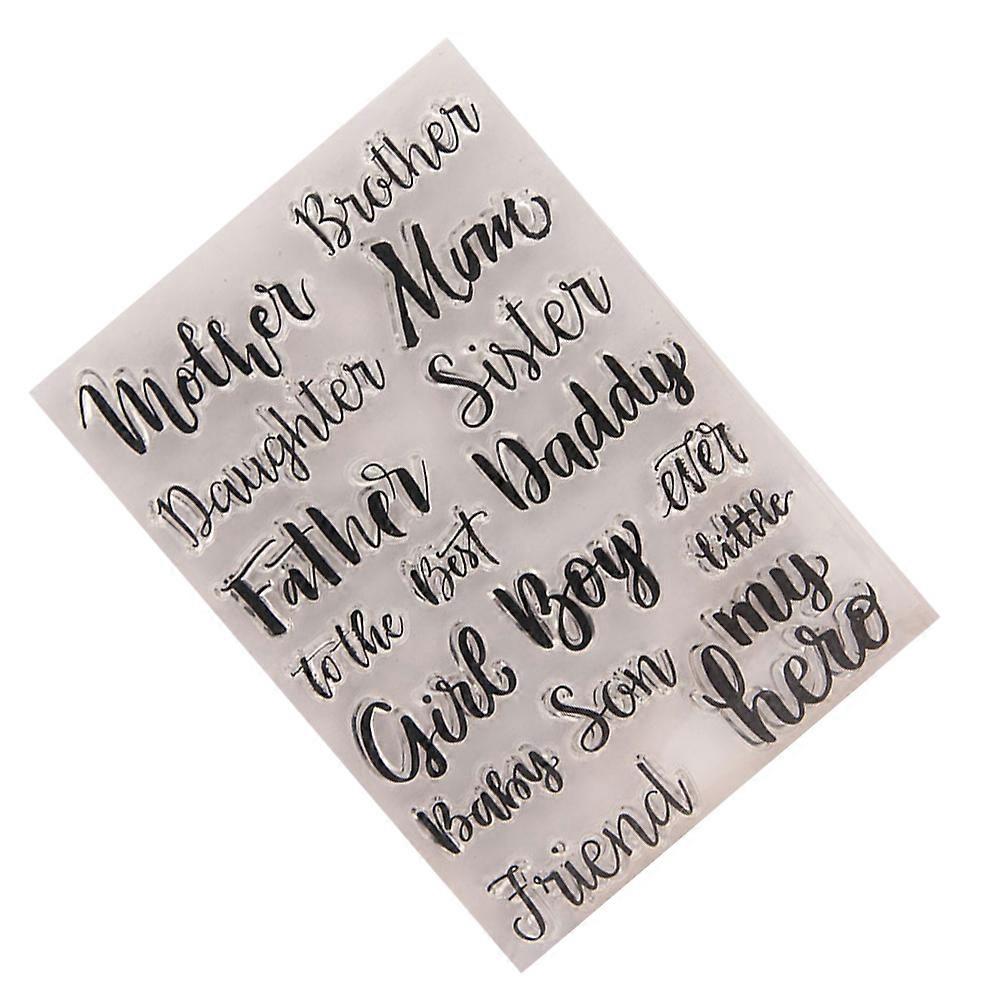 Brother
Mother Mom
Daughter Sister
Father Daddy
to the Best ever
Girl Boy little
Baby Son my
Friend hero